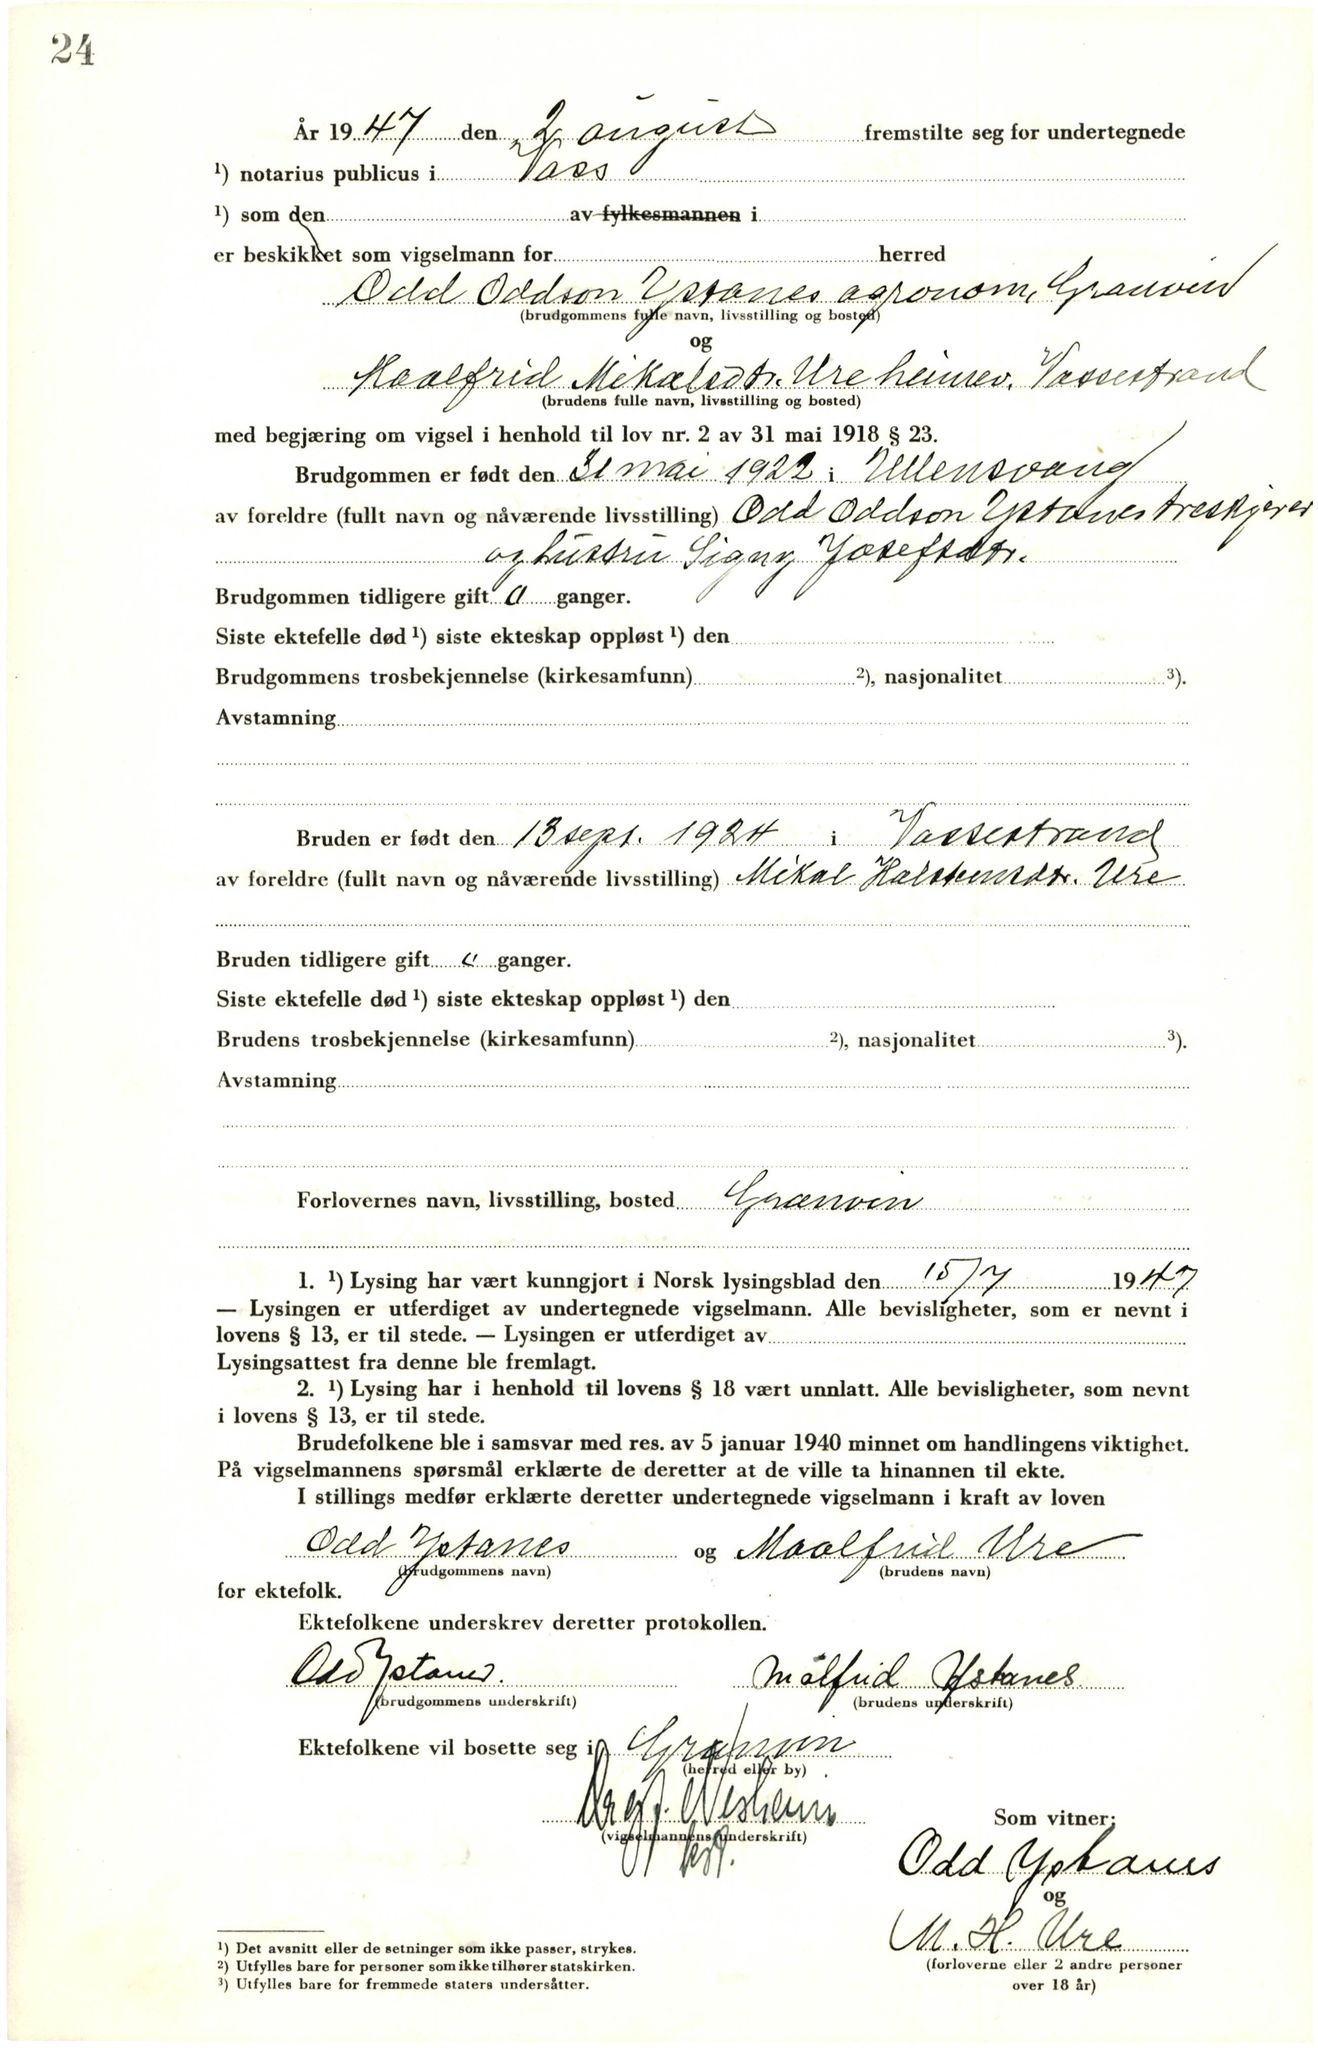 24
År 19 47 den 2 august fremstilte seg for undertegnede
¹) notarius publicus i Vass
¹) som den av fylkesmannen i
er beskikket som vigselmann for herred
Odd Oddson Ystanes agronom, Granvin
(brudgommens fulle navn, livsstilling og bosted)
og
Maalfrid Mikalsdtr. Ure heimev. Vossestrand
(brudens fulle navn, livsstilling og bosted)
med begjæring om vigsel i henhold til lov nr. 2 av 31 mai 1918 § 23.
Brudgommen er født den 31 mai 1922 i Ullensvang
av foreldre (fullt navn og nåværende livsstilling) Odd Oddson Ystanes treskjerer
og hustru Signy Josefsdtr.
Brudgommen tidligere gift 0 ganger.
Siste ektefelle død ¹) siste ekteskap oppløst ¹) den
Brudgommens trosbekjennelse (kirkesamfunn) ²), nasjonalitet ³).
Avstamning
Bruden er født den 13 sept. 1924 i Vossestrand
av foreldre (fullt navn og nåværende livsstilling) Mikal Halstensdtr. Ure
Bruden tidligere gift 0 ganger.
Siste ektefelle død ¹) siste ekteskap oppløst ¹) den
Brudens trosbekjennelse (kirkesamfunn) ²), nasjonalitet ³).
Avstamning
Forlovernes navn, livsstilling, bosted Granvin
1. ¹) Lysing har vært kunngjort i Norsk lysingsblad den 15/7 19 47
— Lysingen er utferdiget av undertegnede vigselmann. Alle bevisligheter, som er nevnt i
lovens § 13, er til stede. — Lysingen er utferdiget av
Lysingsattest fra denne ble fremlagt.
2. ¹) Lysing har i henhold til lovens § 18 vært unnlatt. Alle bevisligheter, som nevnt
i lovens § 13, er til stede.
Brudefolkene ble i samsvar med res. av 5 januar 1940 minnet om handlingens viktighet.
På vigselmannens spørsmål erklærte de deretter at de ville ta hinannen til ekte.
I stillings medfør erklærte deretter undertegnede vigselmann i kraft av loven
Odd Ystanes og Maalfrid Ure
(brudgommens navn) (brudens navn)
for ektefolk.
Ektefolkene underskrev deretter protokollen.
Odd Ystanes. Målfrid Ystanes
(brudgommens underskrift) (brudens underskrift)
Ektefolkene vil bosette seg i Granvin
(herred eller by)
(vigselmannens underskrift)
Som vitner:
Odd Ystanes
og
M. H. Ure
(forloverne eller 2 andre personer
over 18 år)
¹) Det avsnitt eller de setninger som ikke passer, strykes.
²) Utfylles bare for personer som ikke tilhører statskirken.
³) Utfylles bare for fremmede staters undersåtter.